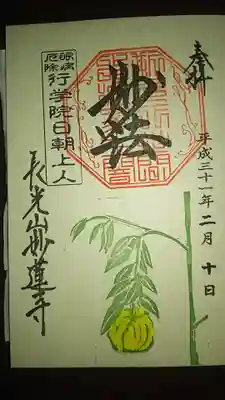 奉拝
平成三十一年二月十日
妙法
眼病
厄除
行学院日朝上人
長光山妙蓮寺